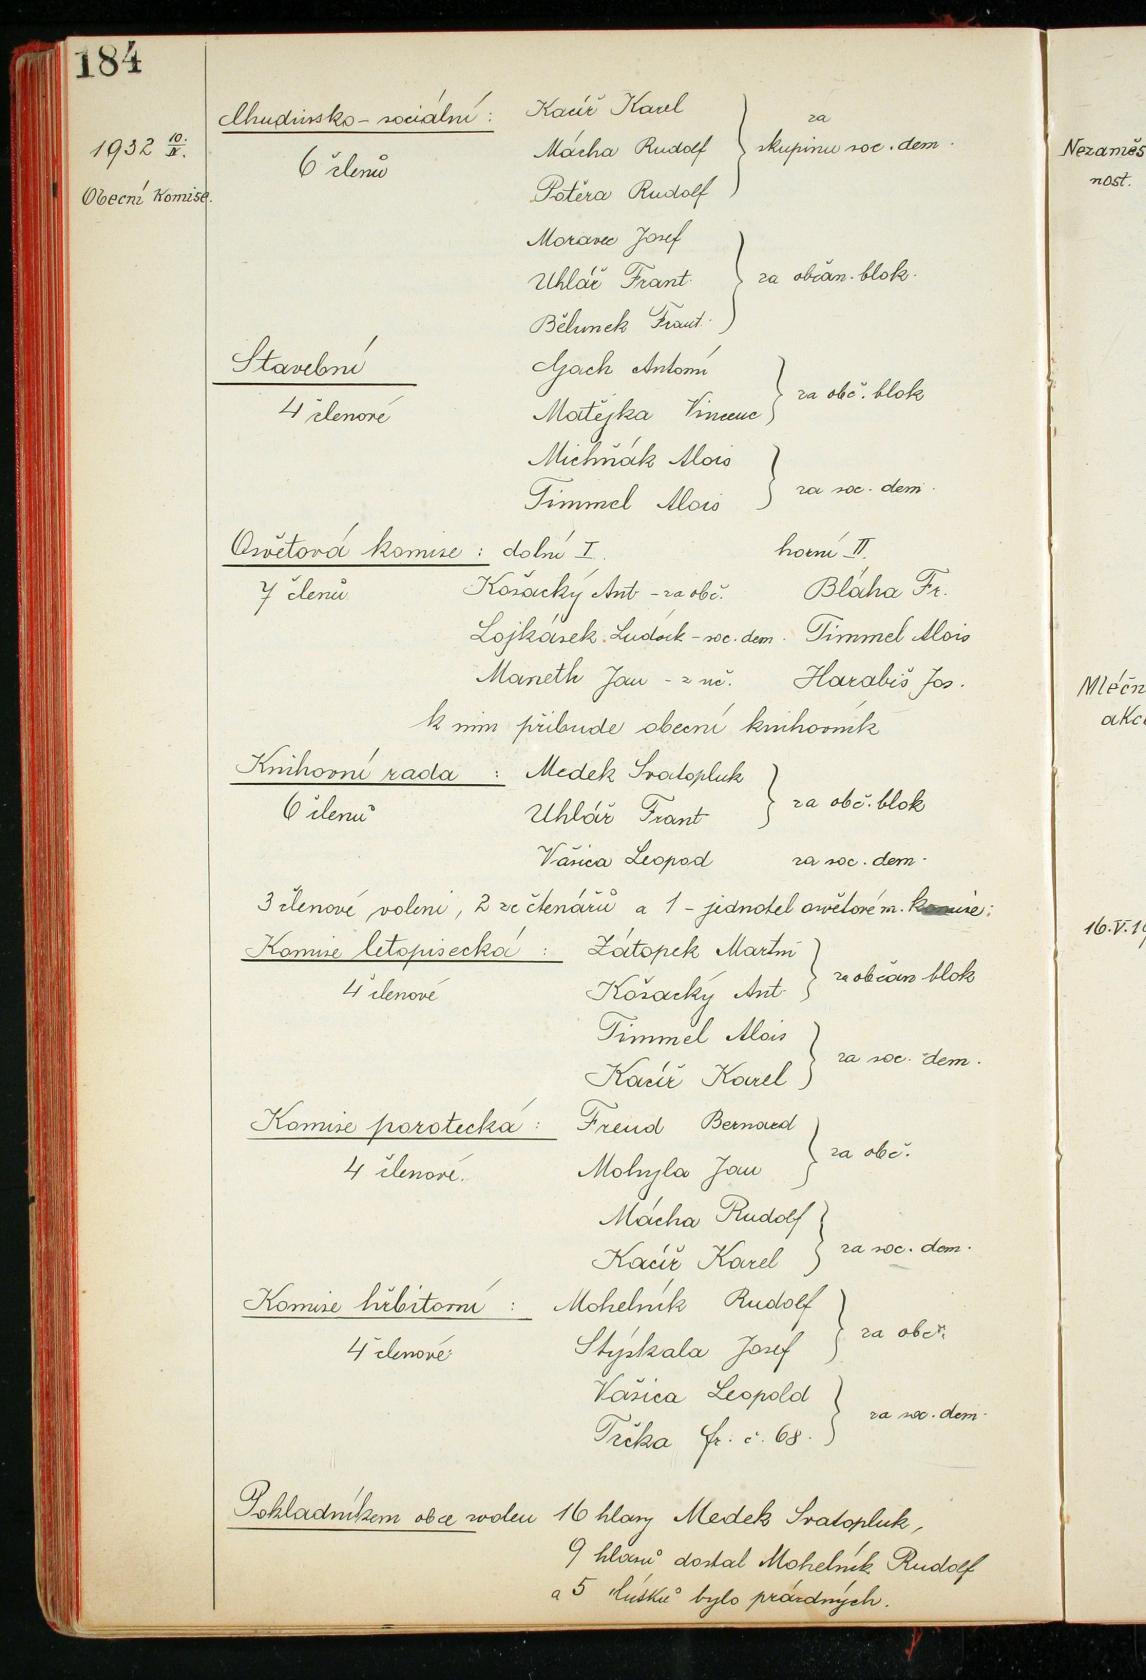 184
1932 10./IV.
Obecní Komise.
Chudinsko - sociální : Kacíř Karel
6 členů Mácha Rudolf za skupinu soc. dem.
Potěra Rudolf
Moravec Josef
Uhlář Frant. za občan. blok.
Bělunek Frant.
Stavební Gach Antoní
4 členové Matějka Vincenc za obč. blok
Michňák Alois
Timmel Alois za soc. dem.
Osvětová komise : dolní I. horní II.
7 členů Košacký Ant - za obč. Bláha Fr.
Lojkásek Ludvík - soc. dem. Timmel Alois
Maneth Jan - z uč. Harabiš Jos.
k nim přibude obecní knihovník
Knihovní rada : Medek Svatopluk
6 členů Uhlář Frant za obč. blok
Vašica Leopod za soc. dem.
3 členové voleni, 2 ze čtenářů a 1 - jednotel osvětové m. komise:
Komise letopisecká : Zátopek Martin
4 členové Košacký Ant. za občan blok
Timmel Alois
Kacíř Karel za soc. dem.
Komise porotecká : Freud Bernard
4 členové. Mohyla Jan za obč.
Mácha Rudolf
Kacíř Karel za soc. dem.
Komise hřbitovní : Mohelník Rudolf
4 členové: Stýskala Josef za obč.
Vašica Leopold
Trčka fr. č. 68. za soc. dem.
Pokladníkem obce zvolen 16 hlasy Medek Svatopluk,
9 hlasů dostal Mohelník Rudolf
a 5 lístků bylo prázdných.
Nezaměs
nost.
Mléčn
akc
16.V.19